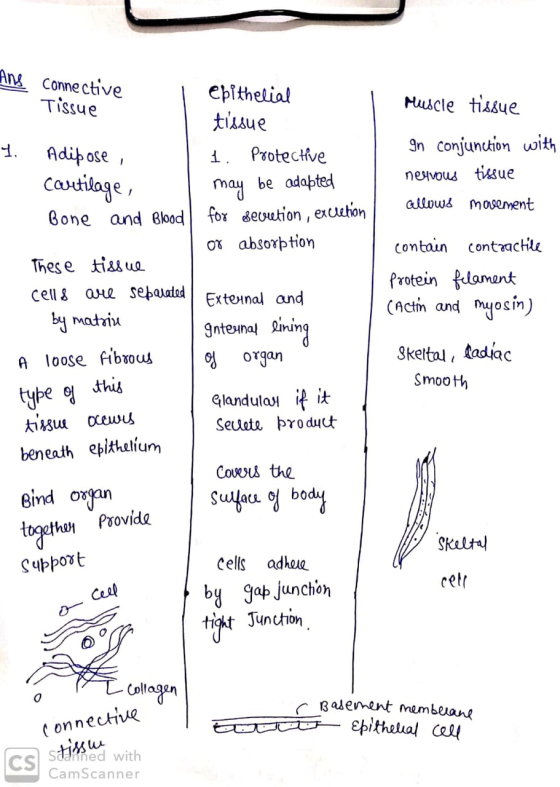 Ans
Connective
Tissue
1. Adipose,
Cartilage,
Bone and Blood
These tissue
cells are separated
by matrix
A loose fibrous
type of this
tissue occurs
beneath epithelium
Bind organ
together Provide
Support
cell
Collagen
Connective
tissue
Epithelial
tissue
1. Protective
may be adapted
for secretion, excretion
or absorption
External and
Internal lining
of organ
Glandular if it
Secrete product
Covers the
Surface of body
Cells adhere
by gap junction
tight Junction.
Basement membrane
Epithelial cell
Muscle tissue
In conjunction with
nervous tissue
allows movement
contain contractile
Protein filament
(Actin and myosin)
Skeltal, Cadiac
Smooth
Skeltal
cell
CS Scanned with
CamScanner